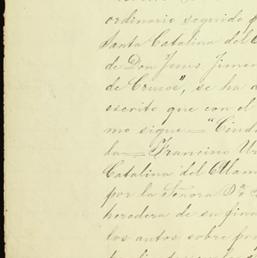 ordinario seguido p
Santa Catalina del C
de Don Jesus Jimen
de Cruces", se ha d
escrito que con el
mo sigue = "Ciuda
la = Francisco Ur
Catalina del Alam
por la Señora Da
heredera de su fina
los autos sobre pro